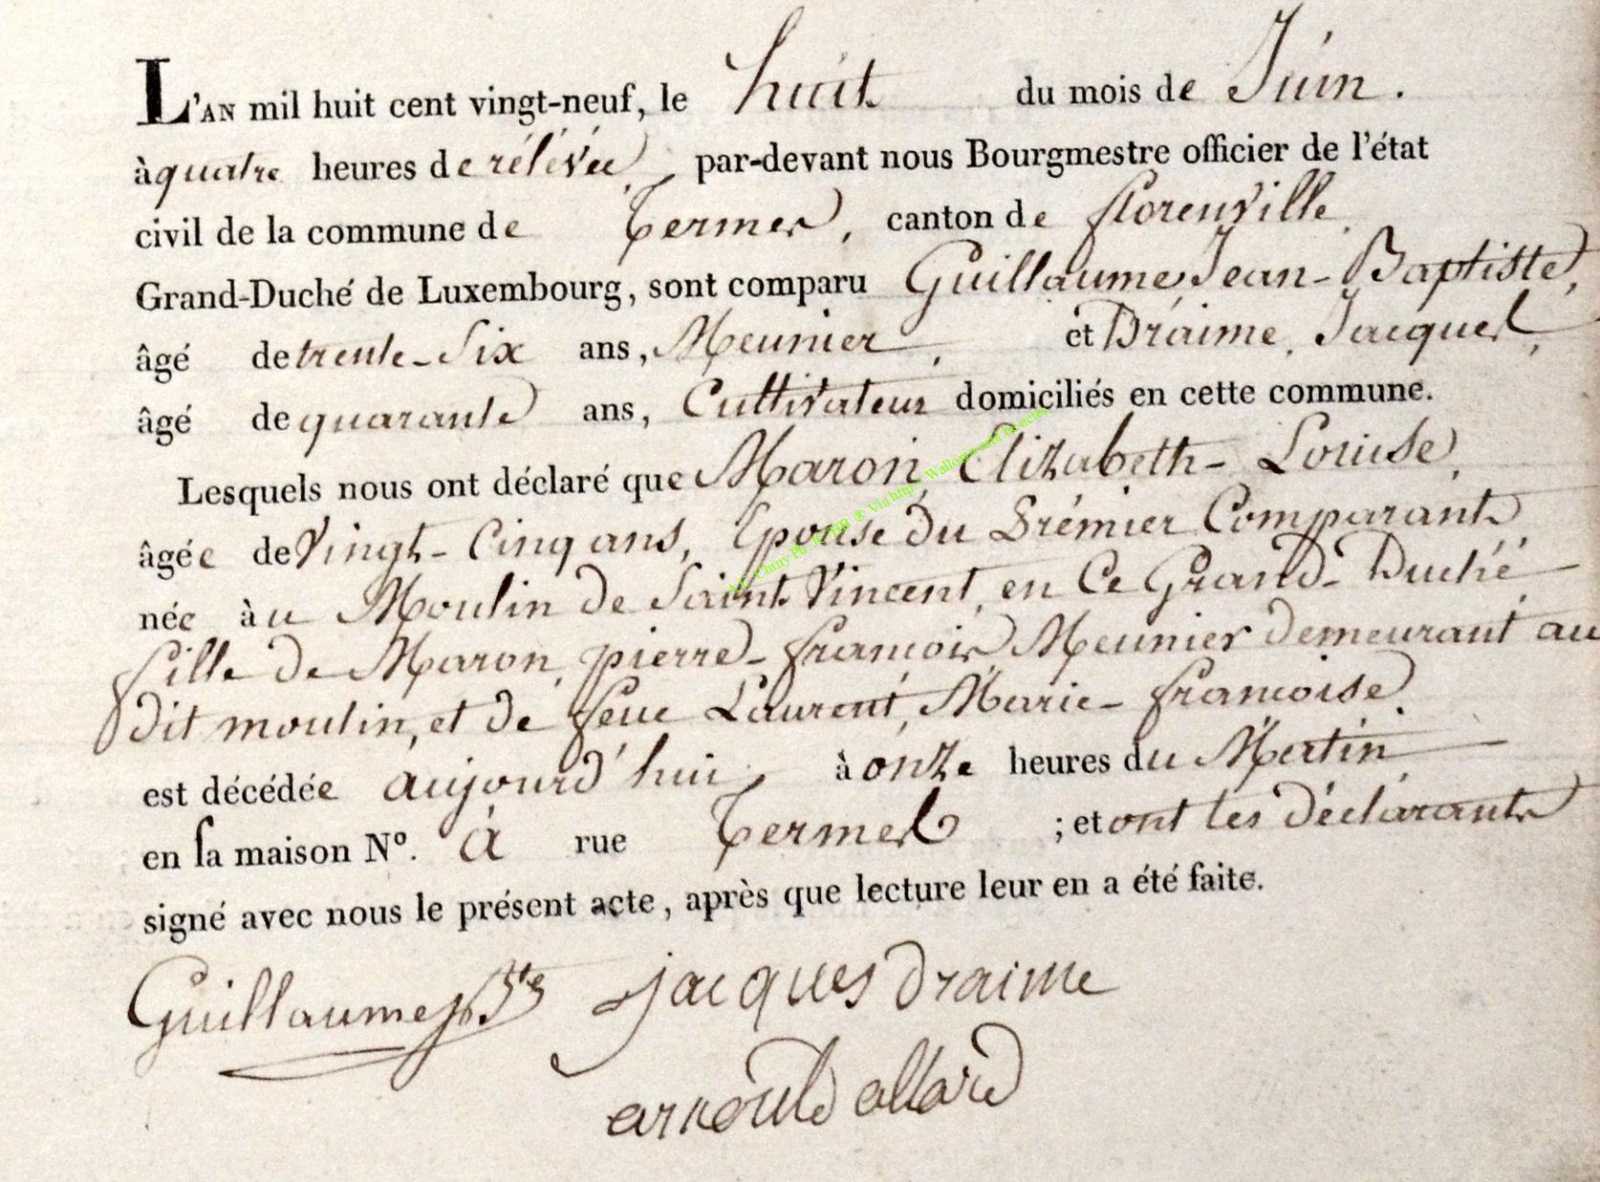 L'AN mil huit cent vingt-neuf, le huit du mois de Juin.
à quatre heures de rélévée, par-devant nous Bourgmestre officier de l'état
civil de la commune de Termes, canton de florenville,
Grand-Duché de Luxembourg, sont comparu Guillaume, Jean-Baptiste,
âgé de trente-Six ans, Meunier, et Draime, Jacques,
âgé de quarante ans, Cultivateur domiciliés en cette commune.
Lesquels nous ont déclaré que Maron Elizabeth-Louise,
âgée de Vingt-Cinq ans, Epouse du Prémier Comparant
née àu Moulin de Saint Vincent, en Ce Grand-Duché
fille de Maron, pierre-françois, Meunier demeurant au
dit moulin, et de feue Laurent, Marie-françoise,
est décédée aujourd'hui, à onze heures du Mattin,
en sa maison N°. à rue Termes ; et ont les déclarants
signé avec nous le présent acte, après que lecture leur en a été faite.
Guillaume J. Bte jacques draime
arnould allard